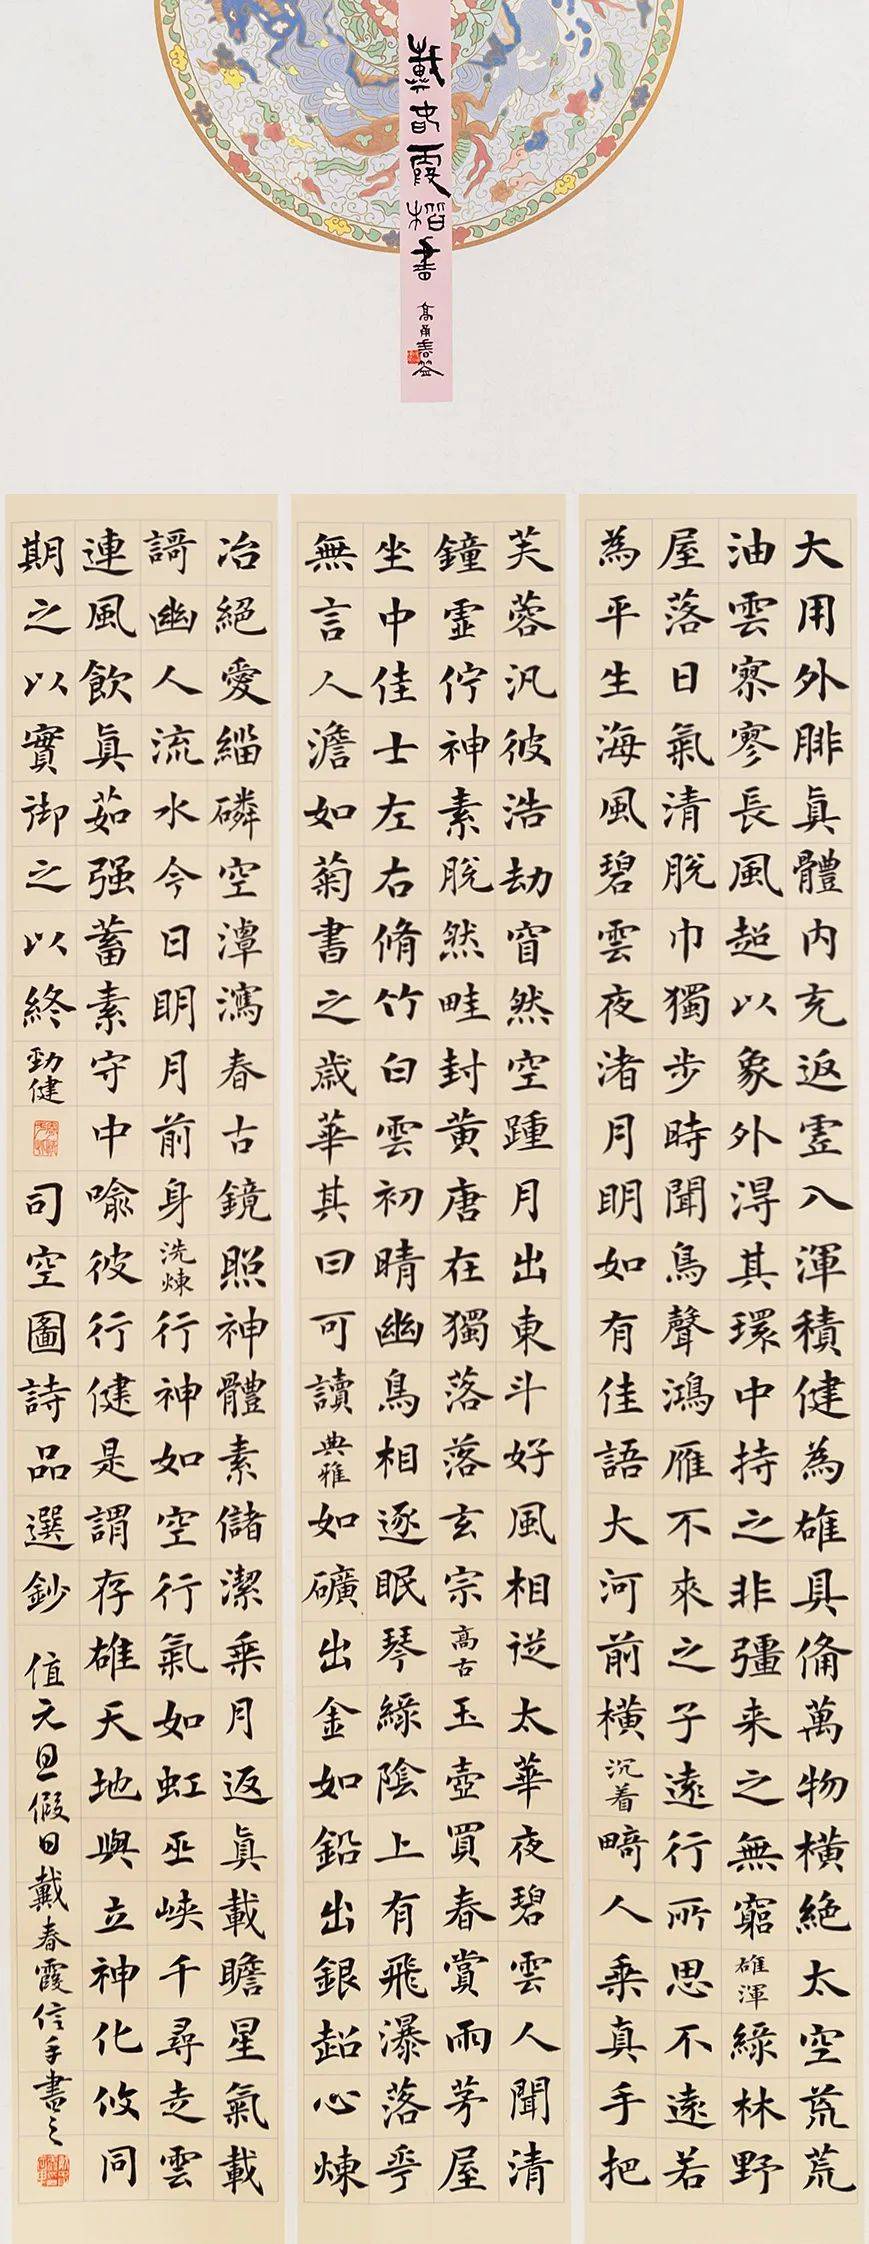 戴春霞楷書
大用外腓眞體内充返虛入渾積健為雄具備萬物橫絕太空荒荒
油雲寥寥長風超以象外得其環中持之非彊来之無窮雄渾綠林野
屋落日氣清脫巾獨步時聞鳥聲鴻雁不來之子遠行所思不遠若
為平生海風碧雲夜渚月明如有佳語大河前橫沉着畸人乘真手把
芙蓉汎彼浩劫窅然空踵月出東斗好風相從太華夜碧雲人聞清
鐘虛佇神素脫然畦封黄唐在獨落落玄宗高古玉壺買春賞雨茅屋
坐中佳士左右脩竹白雲初晴幽鳥相逐眠琴綠陰上有飛瀑落花
無言人澹如菊書之歲華其曰可讀典雅如礦出金如鉛出銀超心煉
冶絕愛緇磷空潭瀉春古鏡照神體素儲潔乘月返眞載瞻星氣載
謌幽人流水今日明月前身洗煉行神如空行氣如虹巫峽千尋走雲
連風飲眞茹强蓄素守中喻彼行健是謂存雄天地與立神化攸同
期之以實御之以終勁健司空圖詩品選鈔值元旦假日戴春霞信手書之